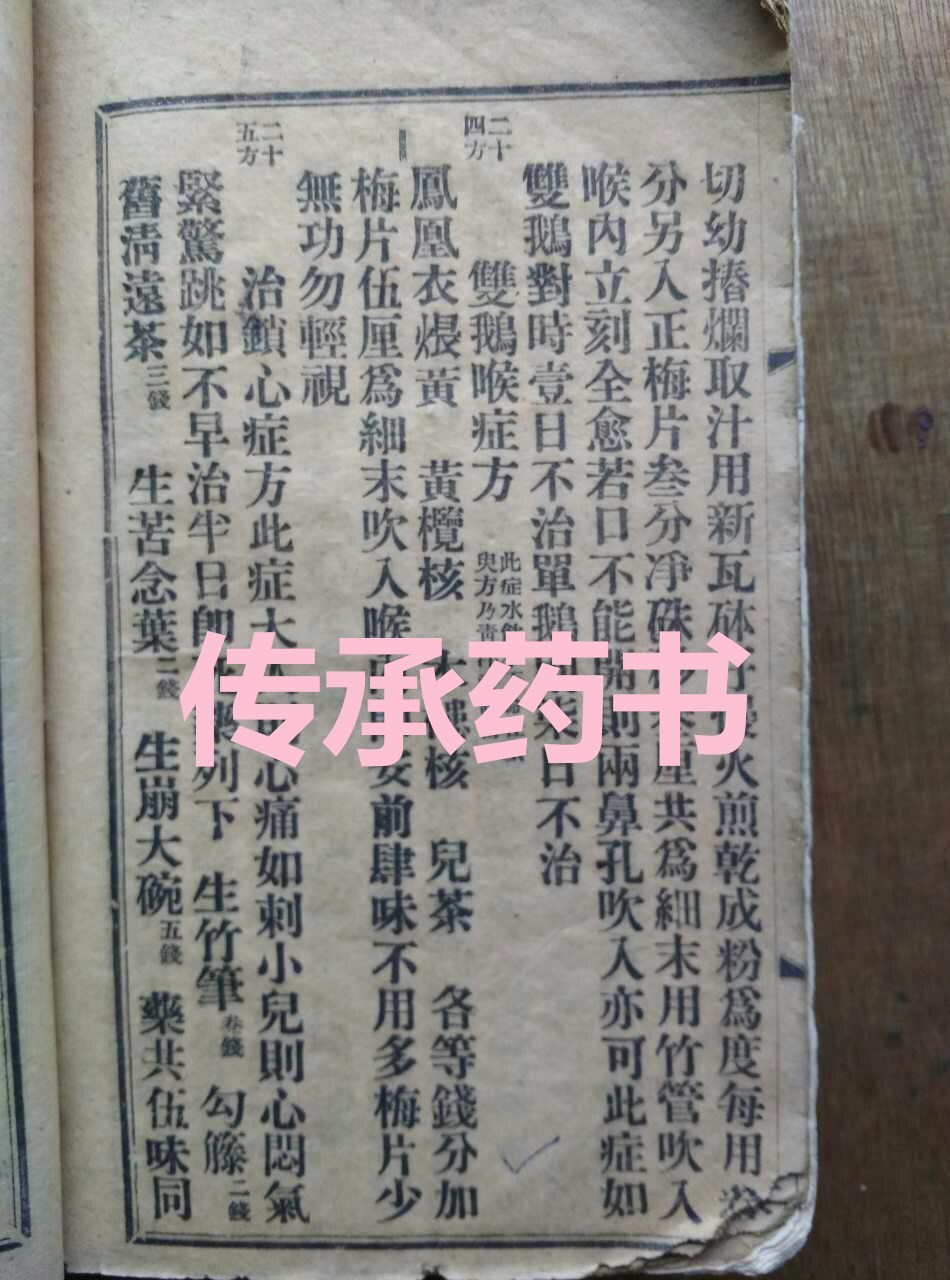 切幼摏爛取汁用新瓦砵火煎乾成粉爲度每用
分另入正梅片叁分凈硃厘共爲細末用竹管吹入
喉內立刻全愈若口不能開則兩鼻孔吹入亦可此症如
雙鵝對時壹日不治單鵝日不治
二十四方
雙鵝喉症方
此症水
方乃
鳳凰衣煨黃 黃欖核 核 兒茶 各等錢分加
梅片伍厘爲細末吹入喉安前肆味不用多梅片少
無功勿輕視
二十五方
治鎖心症方此症大心痛如刺小兒則心悶氣
緊驚跳如不早治半日即列下 生竹筆叁錢 勾籐二錢
舊清遠茶三錢 生苦念葉二錢 生崩大碗五錢 藥共伍味同
传承药书